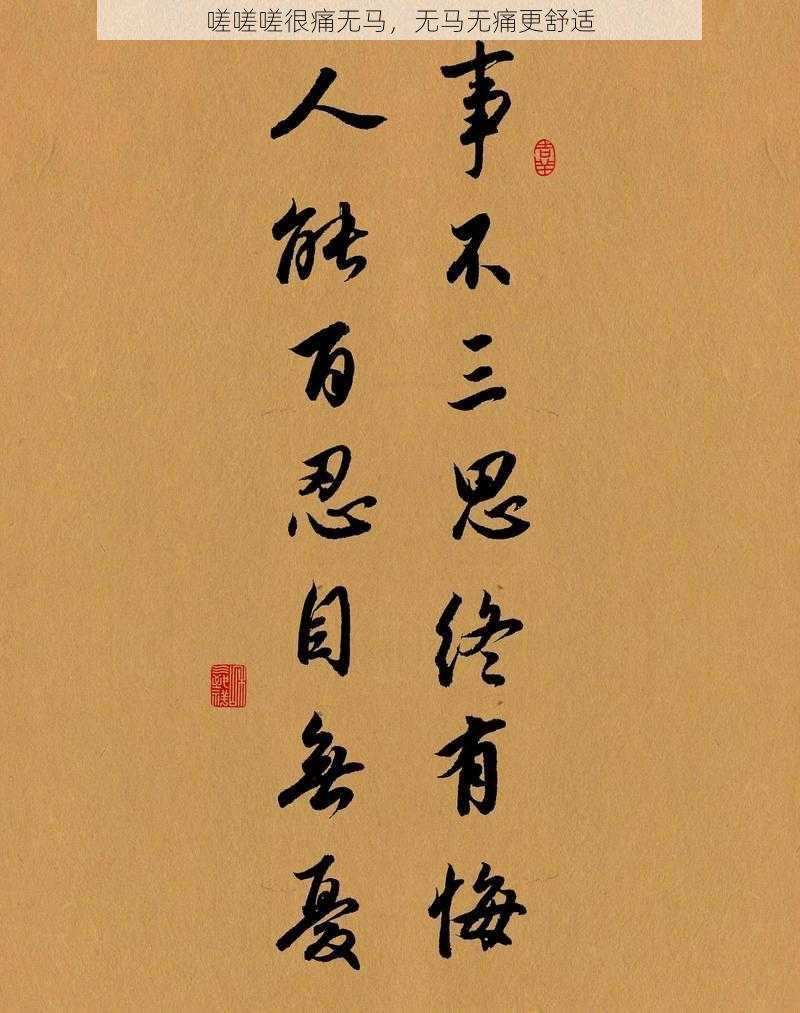 嗟嗟嗟很痛无马，无马无痛更舒适
事不三思终有悔
人能百忍自無憂